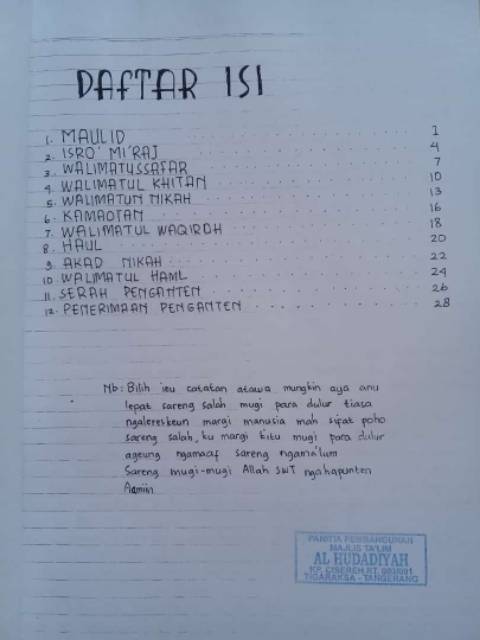 DAFTAR ISI
1. MAULID . . . . . . . . . . . . . . . . 1
2. ISRO' MI'RAJ . . . . . . . . . . . . . . . . 4
3. WALIMATUSSAFAR . . . . . . . . . . . . . . . . 7
4. WALIMATUL KHITAN . . . . . . . . . . . . . . . . 10
5. WALIMATUN NIKAH . . . . . . . . . . . . . . . . 13
6. KAMAOTAN . . . . . . . . . . . . . . . . 16
7. WALIMATUL WAQIROH . . . . . . . . . . . . . . . . 18
8. HAUL . . . . . . . . . . . . . . . . 20
9. AKAD NIKAH . . . . . . . . . . . . . . . . 22
10. WALIMATUL HAML . . . . . . . . . . . . . . . . 24
11. SERAH PENGANTEN . . . . . . . . . . . . . . . . 26
12. PENERIMAAN PENGANTEN . . . . . . . . . . . . . . . . 28
Nb: Bilih ieu catatan atawa mungkin aya anu
lepat sareng salah mugi para dulur tiasa
ngalereskeun margi manusia mah sipat poho
sareng salah, ku margi kitu mugi para dulur
ageung ngamaaf sareng ngama'lum
Sareng mugi-mugi Allah SWT ngahapunten
Aamiin
PANITIA PEMBANGUNAN
MAJLIS TA'LIM
AL HUDADIYAH
KP. CISEREH RT. 003/001
TIGARAKSA - TANGERANG